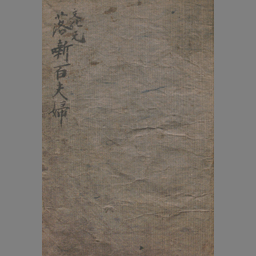 落噺百夫婦